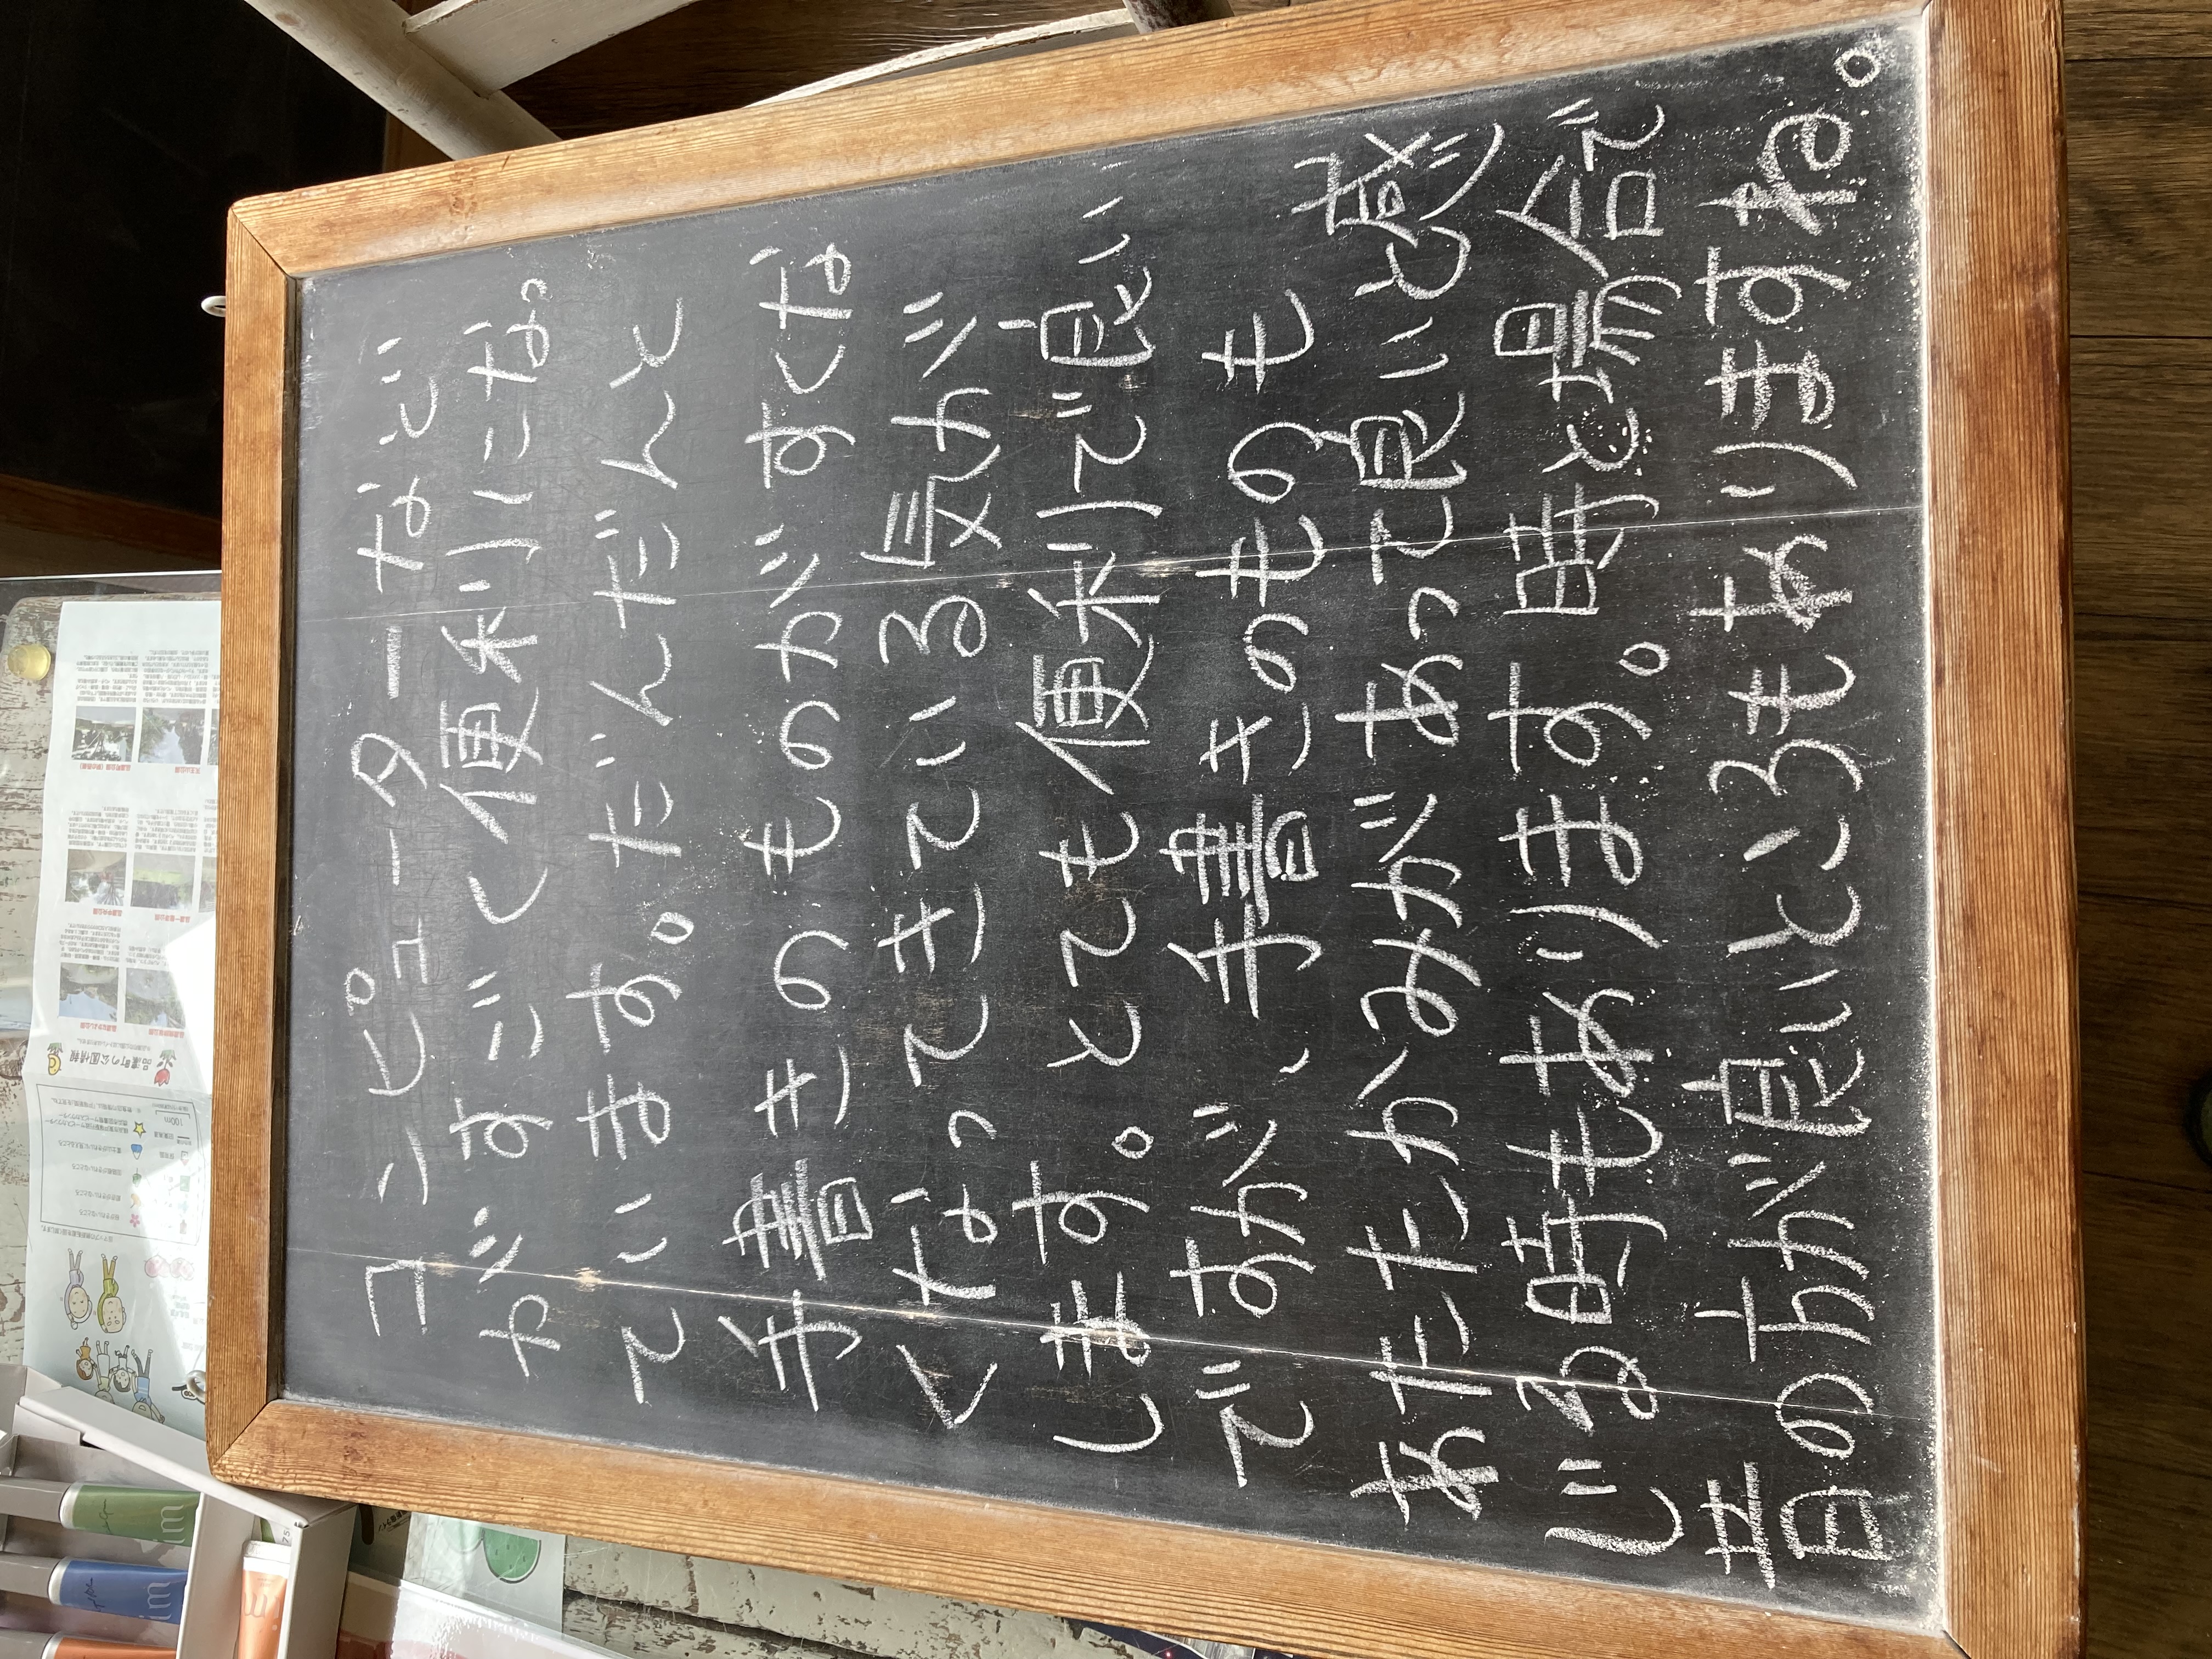 コンピューターなど
がすごく便利になっ
ています。だんだんと
手書きのものがすくな
くなってきている気が
します。とても便利で良い
ですが、手書きのものも
あたたかみがあって良いと感
じる時もあります。時と場合で
昔の方が良いところもありますね。
品濃町の公園情報
100m